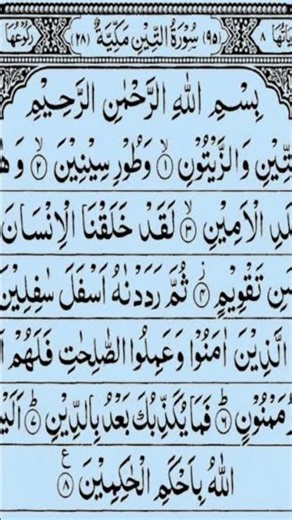 اٰیاتُهَا ٨ (٩٥) سُوْرَةُ التِّيْنِ مَكِّيَّةٌ (٢٨) رُكُوْعُهَا
بِسْمِ اللّٰهِ الرَّحْمٰنِ الرَّحِيْمِ
تِّيْنِ وَالزَّيْتُوْنِ ۝١ وَطُوْرِ سِيْنِيْنَ ۝٢ وَهٰ
لَدِ الْاَمِيْنِ ۝٣ لَقَدْ خَلَقْنَا الْاِنْسَانَ
سَنِ تَقْوِيْمٍ ۝٤ ثُمَّ رَدَدْنٰهُ اَسْفَلَ سٰفِلِيْنَ
الَّذِيْنَ اٰمَنُوْا وَعَمِلُوا الصّٰلِحٰتِ فَلَهُمْ اَ
رُ مَمْنُوْنٍ ۝٦ فَمَا يُكَذِّبُكَ بَعْدُ بِالدِّيْنِ ۝٧ اَلَيْ
اللّٰهُ بِاَحْكَمِ الْحٰكِمِيْنَ ۝٨ ع